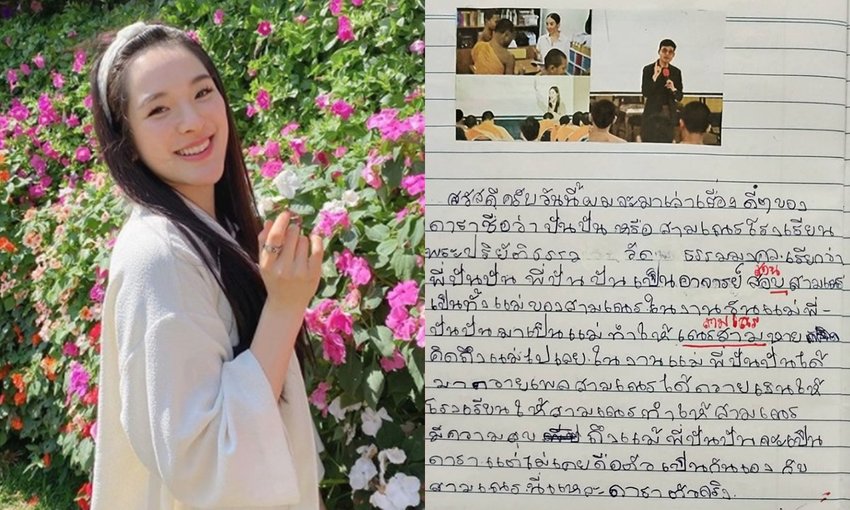 สวัสดีครับวันนี้ผมจะมาเล่าเรื่อง ดีๆของ
ดาราชื่อว่า ปันปัน หรือ สามเณรโรงเรียน
พระปริยัติธรรม วัด ธรรมมงคล.เรียกว่า
พี่ปันปัน พี่ปันปันเป็นอาจารย์ สอบ สามเณร
สอน
เป็นทั้งแม่ของสามเณรในงานวันแม่ พี่-
ปันปันมาเป็นแม่ ทำให้ เณรสาม หาย
สามเณร
คิดถึงแม่ไปเลย ในงานแม่ พี่ปันปันได้
มาถวายเพลสามเณรได้ถวายเรนให้
โรงเรียนให้สามเณรทำให้สามเณร
มีความสุข ถึงแม้พี่ปันปันจะเป็น
ดาราแต่ไม่เคยถือตัวเป็นกันเอง กับ
สามเณรนี่แหละดาราตัวจริง.